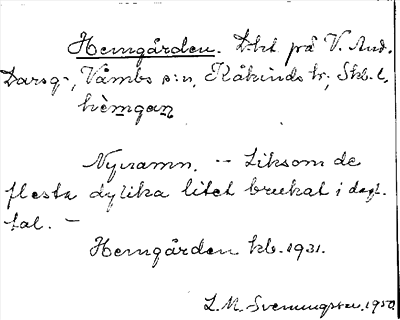 Hemgården. Dht på V. And.
Darsg., Våmbs s:n, Kåkinds hr, Skb. l.
hèmgan
Nynamn. – Liksom de
flesta dylika litet brukat i dagl.
tal. –
Hemgården kb. 1931.
L. M. Svenungsson, 1950